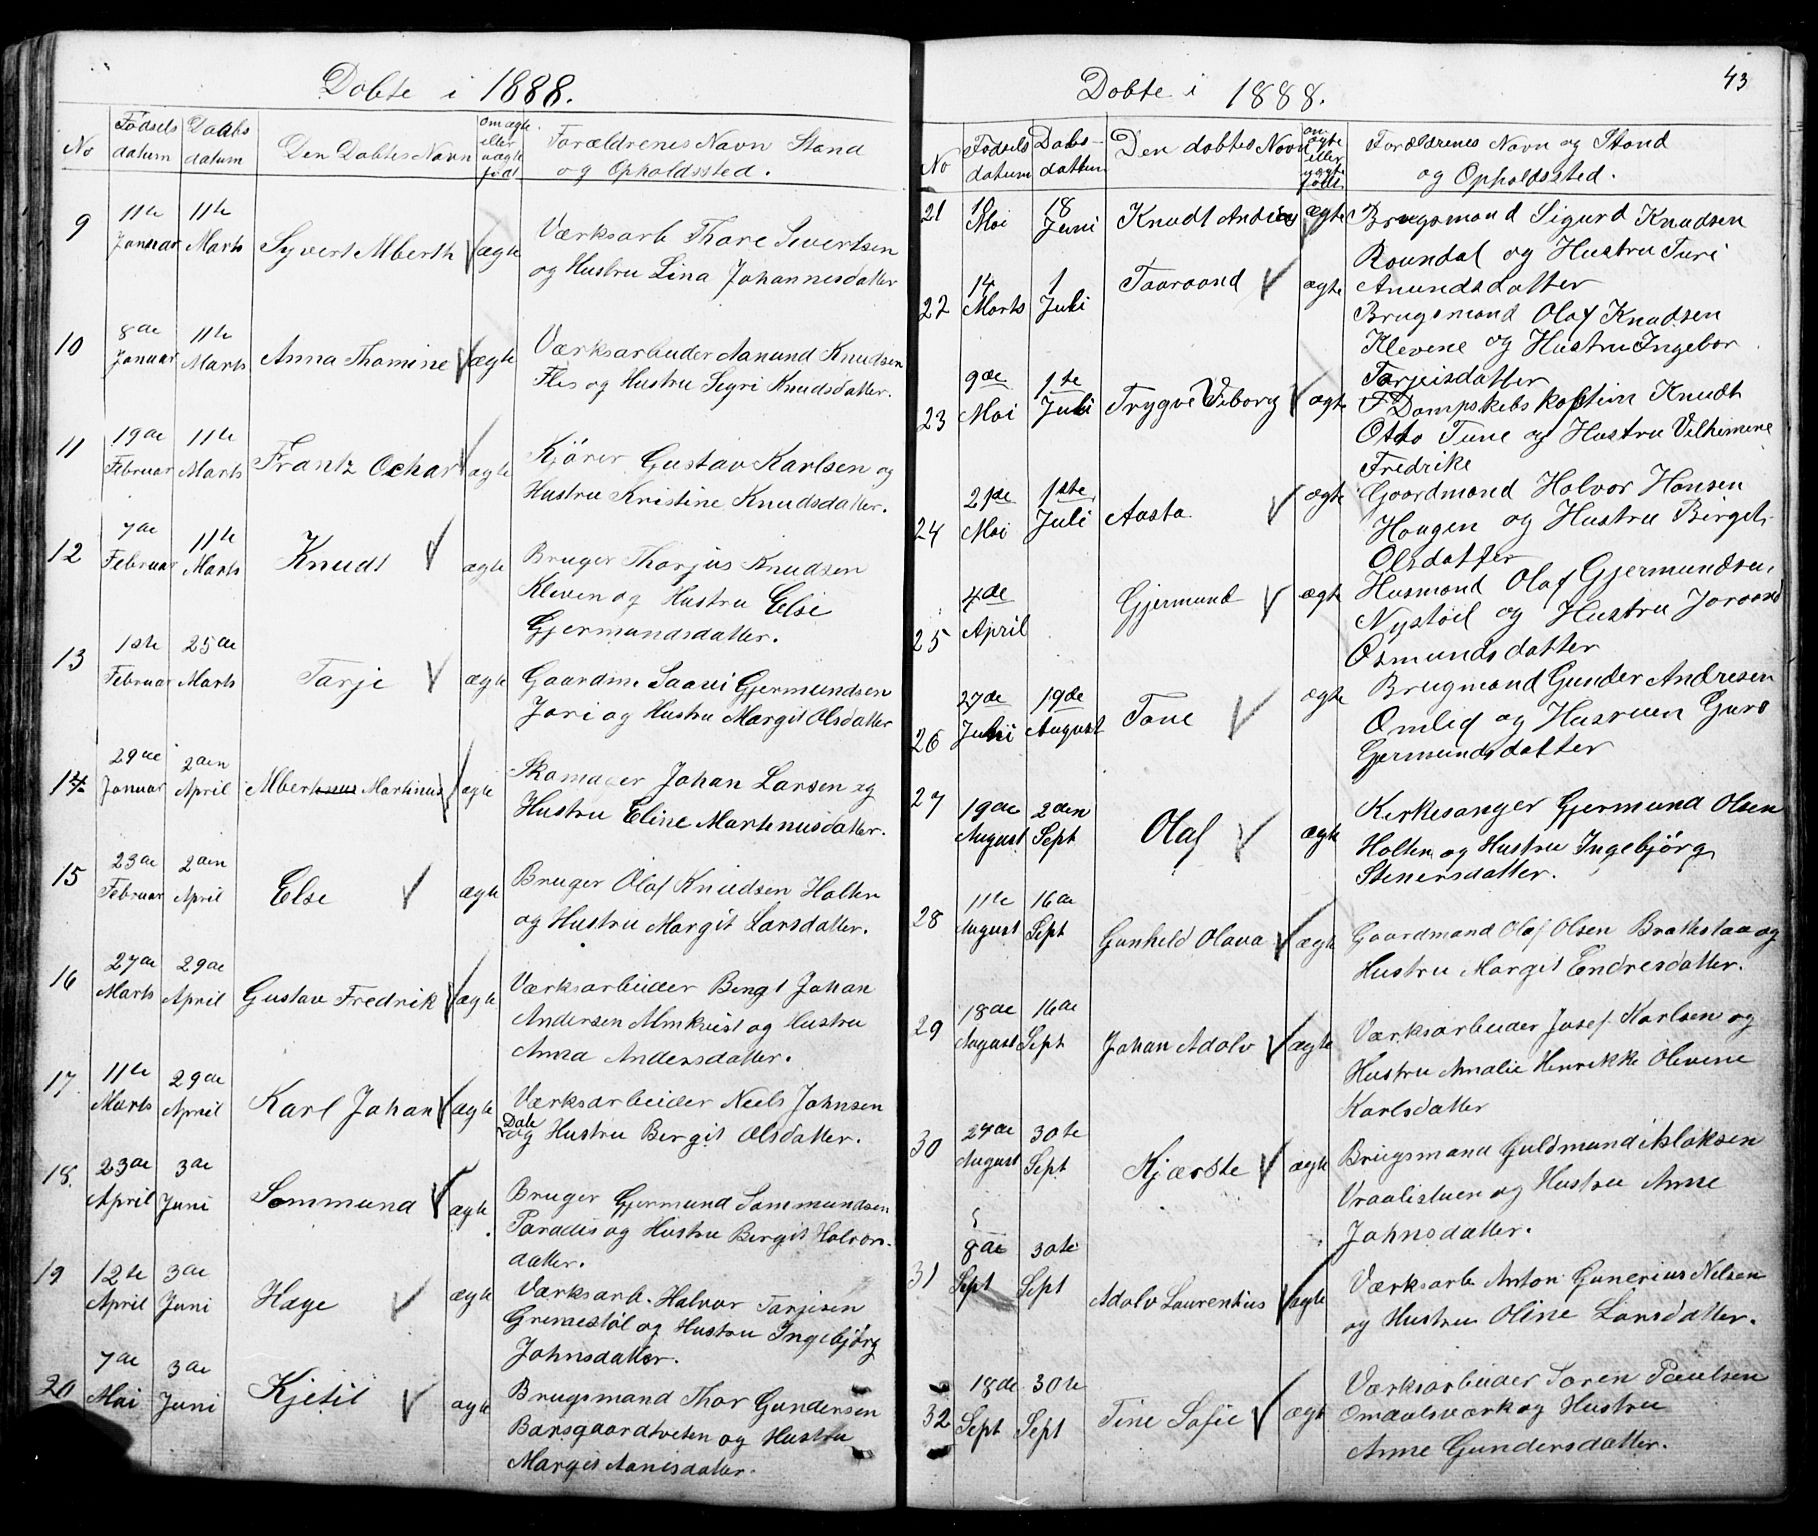 Døbte i 1888.
No
Fødsels
datum
Daabs
datum
Den Døbtes Navn
om ægte
eller
uægte
født
Forældrenes Navn Stand
og Opholdssted.
9
11te
Januar
11te
Marts
Syvert Alberth
ægte
Værksarb Thore Sivertsen
og Hustru Lina Johannesdatter
10
8de
Januar
11te
Marts
Anna Thomine
ægte
Værksarbeider Aanund Knudsen
Fles og Hustru Sigri Knudsdatter.
11
19de
Februar
11te
Marts
Frantz Oskar
ægte
Kjører Gustav Karlsen og
Hustru Kristine Knudsdatter.
12
7de
Februar
11te
Marts
Knudt
ægte
Bruger Thorjus Knudsen
Kleven og Hustru Else
Gjermundsdatter.
13
1ste
Februar
25de
Marts
Tarje
ægte
Gaardm. Saavi Gjermundsen
Jori og Hustru Margit Olsdatter
14
29de
Januar
2den
April
Albert Martinus
ægte
Skomager Johan Larsen og
Hustru Eline Martinusdatter.
15
23de
Februar
2den
April
Else
ægte
Bruger Olaf Knudsen Holten
og Hustru Margit Larsdatter.
16
27de
Marts
29de
April
Gustav Fredrik
ægte
Værksarbeider Bengt Johan
Andersen Almkvist og Hustru
Anna Andersdatter.
17
11te
Marts
29de
April
Karl Johan
ægte
Værksarbeider Neels Johnsen
Dale
og Hustru Bergit Olsdatter.
18.
23de
April
3de
Juni
Sommund
ægte
Bruger Gjermund Sommundsen
Paradis og Hustru Bergit Halvors-
datter.
19
12te
April
3de
Juni
Hæge
ægte
Værksarb. Halvor Tarjesen
Gremestøl og Hustru Ingebjørg
Johnsdatter.
20
7de
Mai
3de
Juni
Kjetil
ægte
Brugsmand Thor Gundersen
Baasgaardtveten og Hustru
Margit Aanesdatter.
43
Døbte i 1888.
No
Fødsels
datum
Dabs-
dattum
Den døbtes Navn
om
ægte
eller
uægte
født
Forældrenes Navn og Stand
og Opholdsted.
21
10
Mai
18
Juni
Knudt Andreas
ægte
Brugsmand Sigurd Knudsen
Roundal og Hustru Turi
Anundsdatter
22
14
Marts
1
Juli
Taaraand
ægte
Brugsmand Olaf Knudsen
Klevene og Hustru Ingebor
Tarjeisdatter
23
9de
Mai
1ste
Juli
Trygve Viborg
ægte
Dampskibskaptein Knudt
Otto Tune og Hustru Vilhemine
Fredrike
24
21de
Mai
1ste
Juli
Aasta
ægte
Gaardmand Halvor Hansen
Haugen og Hustru Birgit
Olsdatter
25
4de
April
Gjermund
ægte
Husmand Olaf Gjermundsen
Nystøil og Hustru Joraand
Osmundsdatter
26
27de
Juli
19de
August
Tone
ægte
Brugmand Gunder Andresen
Omlid og Husruen Guro
Germundsdatter
27
19de
August
2den
Sept
Olaf
ægte
Kirkesanger Gjermund Olsen
Holten og Hustru Ingebjørg
Stenersdatter.
28
11te
August
16de
Sept
Gunhild Olava
ægte
Gaardmand Olaf Olsen Brathstaa og
Hustru Margit Endresdatter.
29
18de
August
16de
Sept
Johan Adolv
ægte
Værksarbeider Josef Karlsen og
Hustru Amalie Henrikke Olivene
Karlsdatter
30
24de
August
30te
Sept
Kjærste
ægte
Brugsmand Guldmund Aslaksen
Vraalistuen og Hustru Anne
Johnsdatter.
31
8de
Sept
30te
Sept
Adolv Laurentius
ægte
Værksarb Anton Gunerius Nilsen
og Hustru Oline Larsdatter.
32
18de
Sept
30te
Sept
Tine Sofie
ægte
Værksarbeider Søren Paulsen
Omdalsværk og Hustru
Anne Gundersdatter.